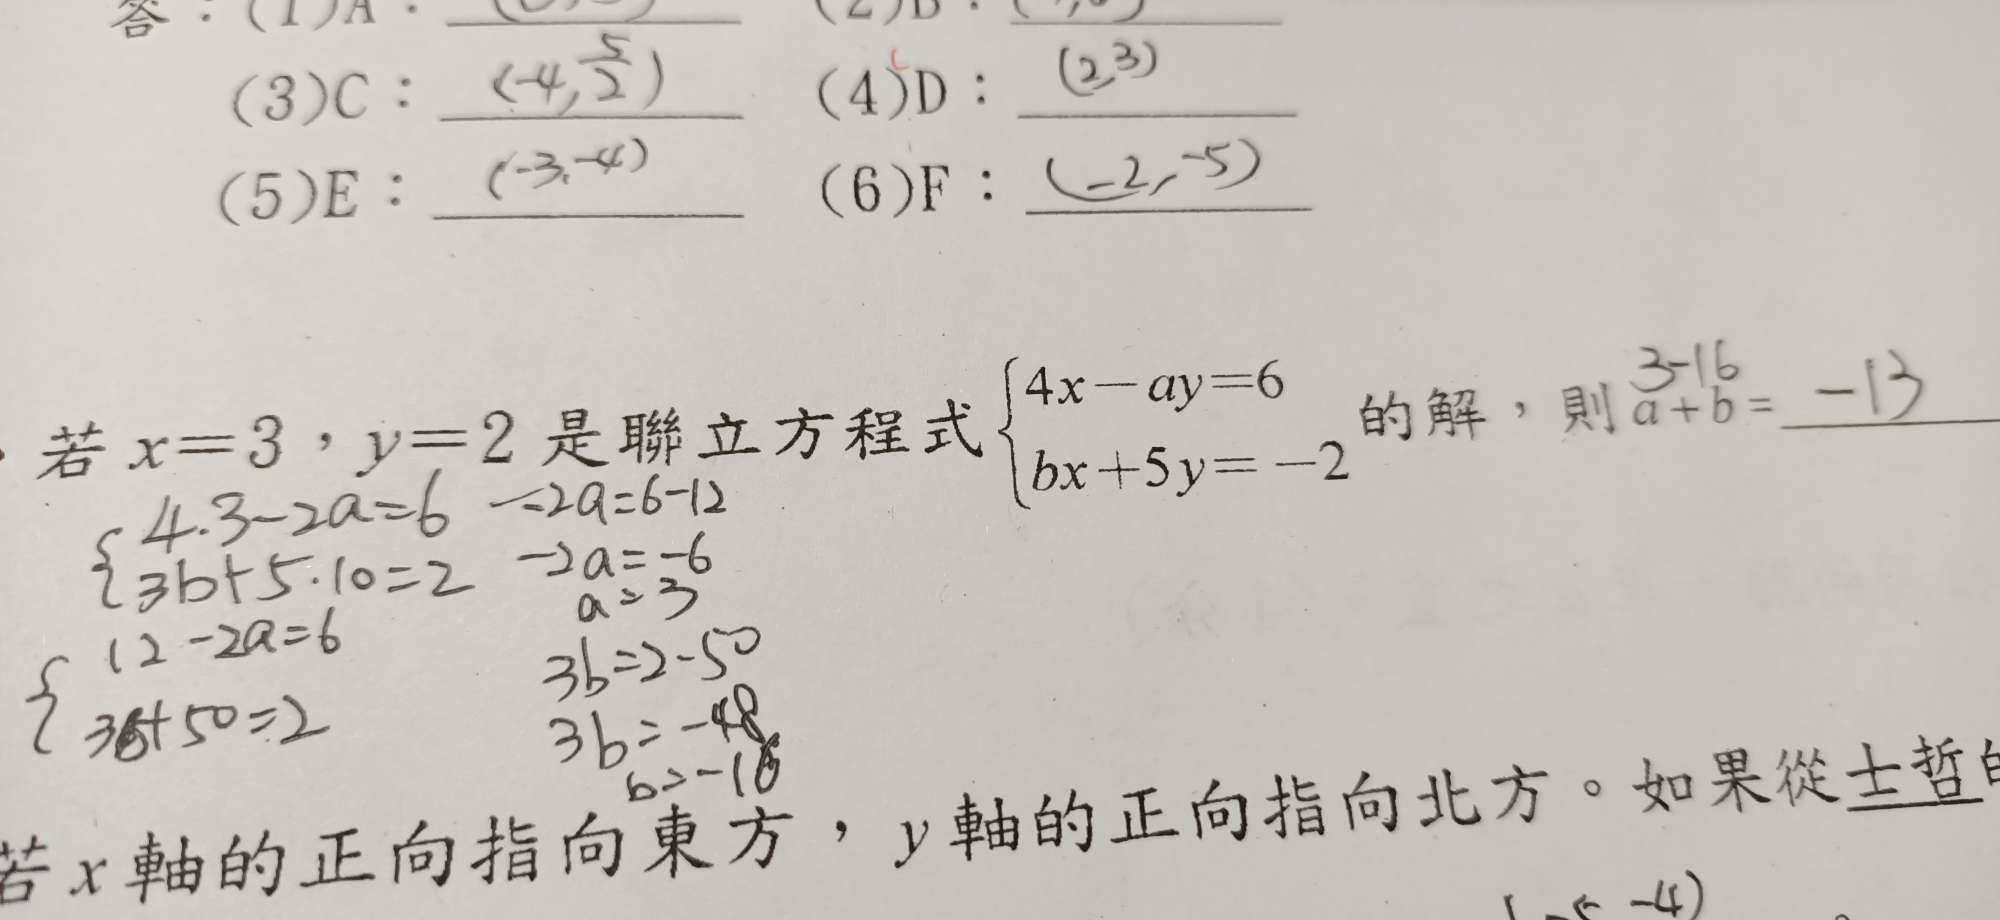 答：(1)A： (2)B：
(3)C： (-4, 5/2) (4)D： (2,3)
(5)E： (-3,-4) (6)F： (-2,-5)
3-16
若 x=3，y=2 是聯立方程式 { 4x－ay=6 的解，則 a+b= -13
bx＋5y=－2
{ 4·3-2a=6 -2a=6-12
3b+5·10=2 -2a=-6
a=3
{ 12-2a=6
3b+50=2 3b=2-50
3b=-48
b=-16
若 x 軸的正向指向東方，y 軸的正向指向北方。如果從士哲的
-4)